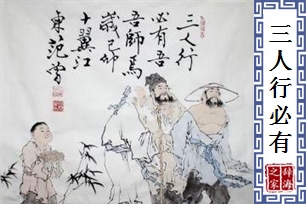 三人行
必有吾
吾師焉
歲己卯
十翼江
東范曾
三人行必有
辞海
之家